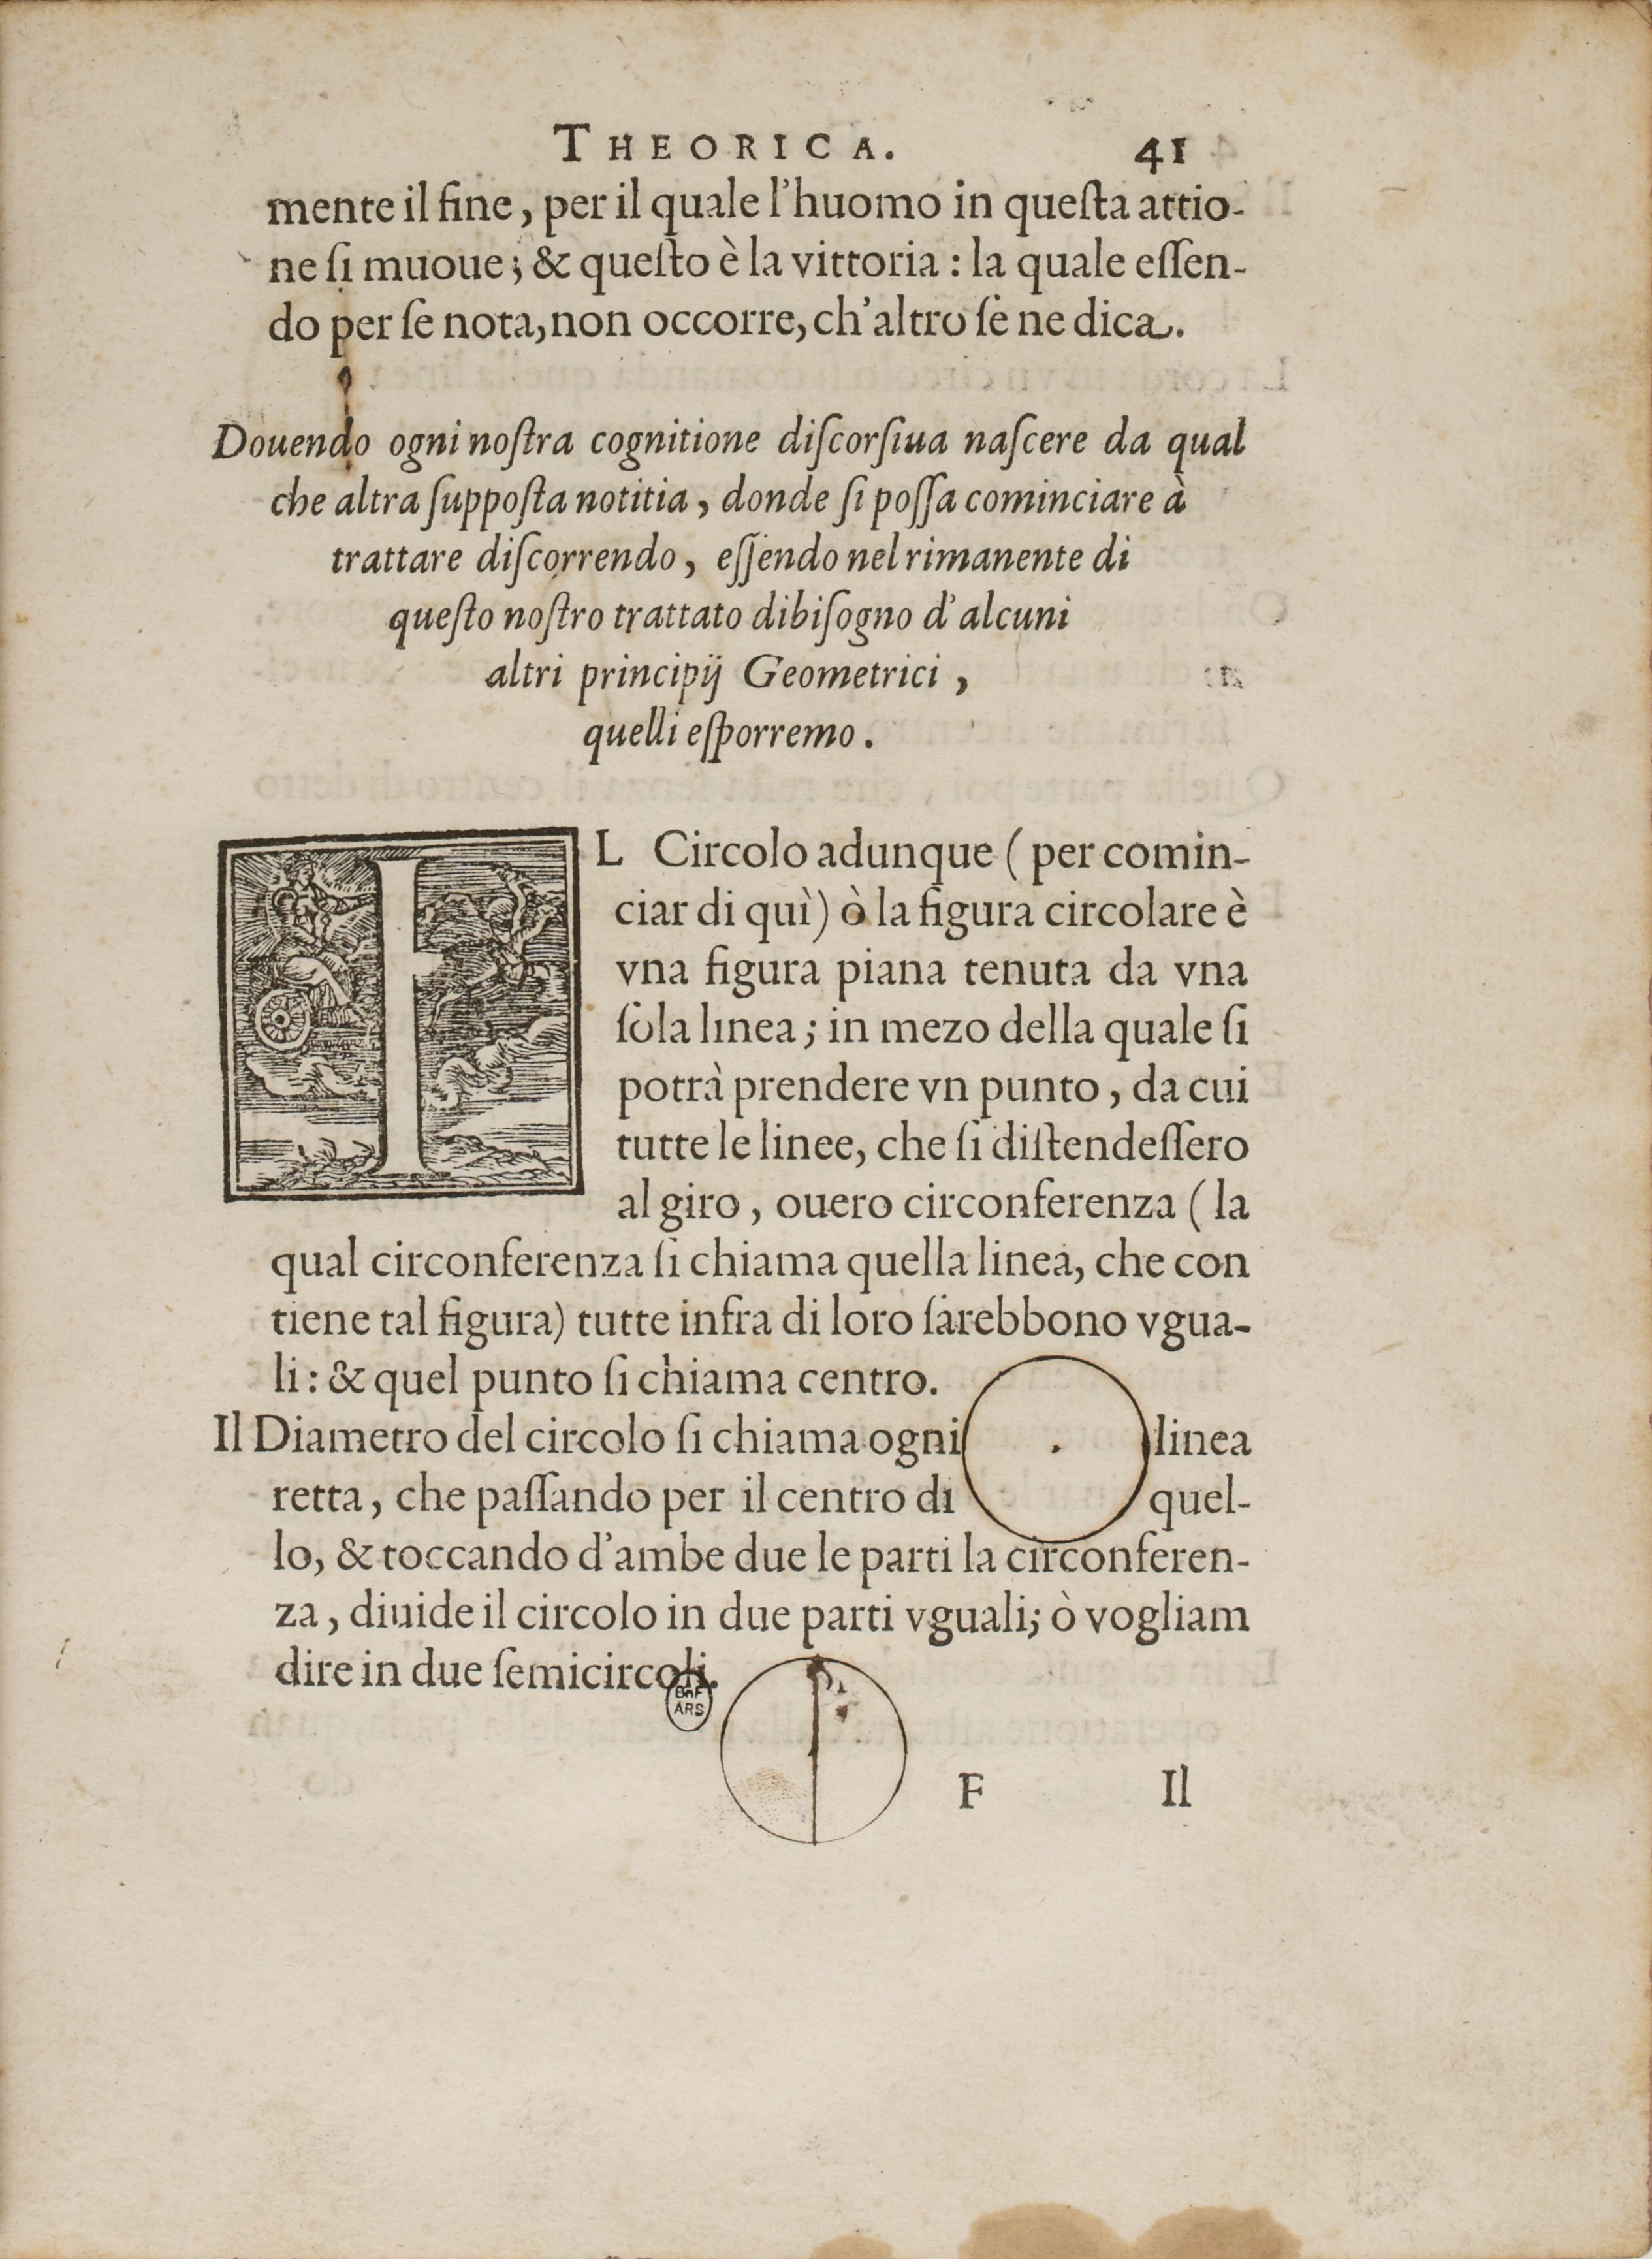 THEORICA. 41
mente il fine, per il quale l'huomo in queſta attio-
ne ſi muoue; & queſto è la vittoria: la quale eſſen-
do per ſe nota, non occorre, ch'altro ſe ne dica.
Douendo ogni noſtra cognitione diſcorſiua naſcere da qual
che altra ſuppoſta notitia, donde ſi poſſa cominciare à
trattare diſcorrendo, eſſendo nel rimanente di
queſto noſtro trattato dibiſogno d'alcuni
altri principij Geometrici,
quelli eſporremo.
IL Circolo adunque (per comin-
ciar di quì) ò la figura circolare è
vna figura piana tenuta da vna
ſola linea; in mezo della quale ſi
potrà prendere vn punto, da cui
tutte le linee, che ſi diſtendeſſero
al giro, ouero circonferenza (la
qual circonferenza ſi chiama quella linea, che con
tiene tal figura) tutte infra di loro ſarebbono vgua-
li: & quel punto ſi chiama centro.
Il Diametro del circolo ſi chiama ogni linea
retta, che paſſando per il centro di quel-
lo, & toccando d'ambe due le parti la circonferen-
za, diuide il circolo in due parti vguali; ò vogliam
dire in due ſemicircoli.
BnF
ARS
F Il